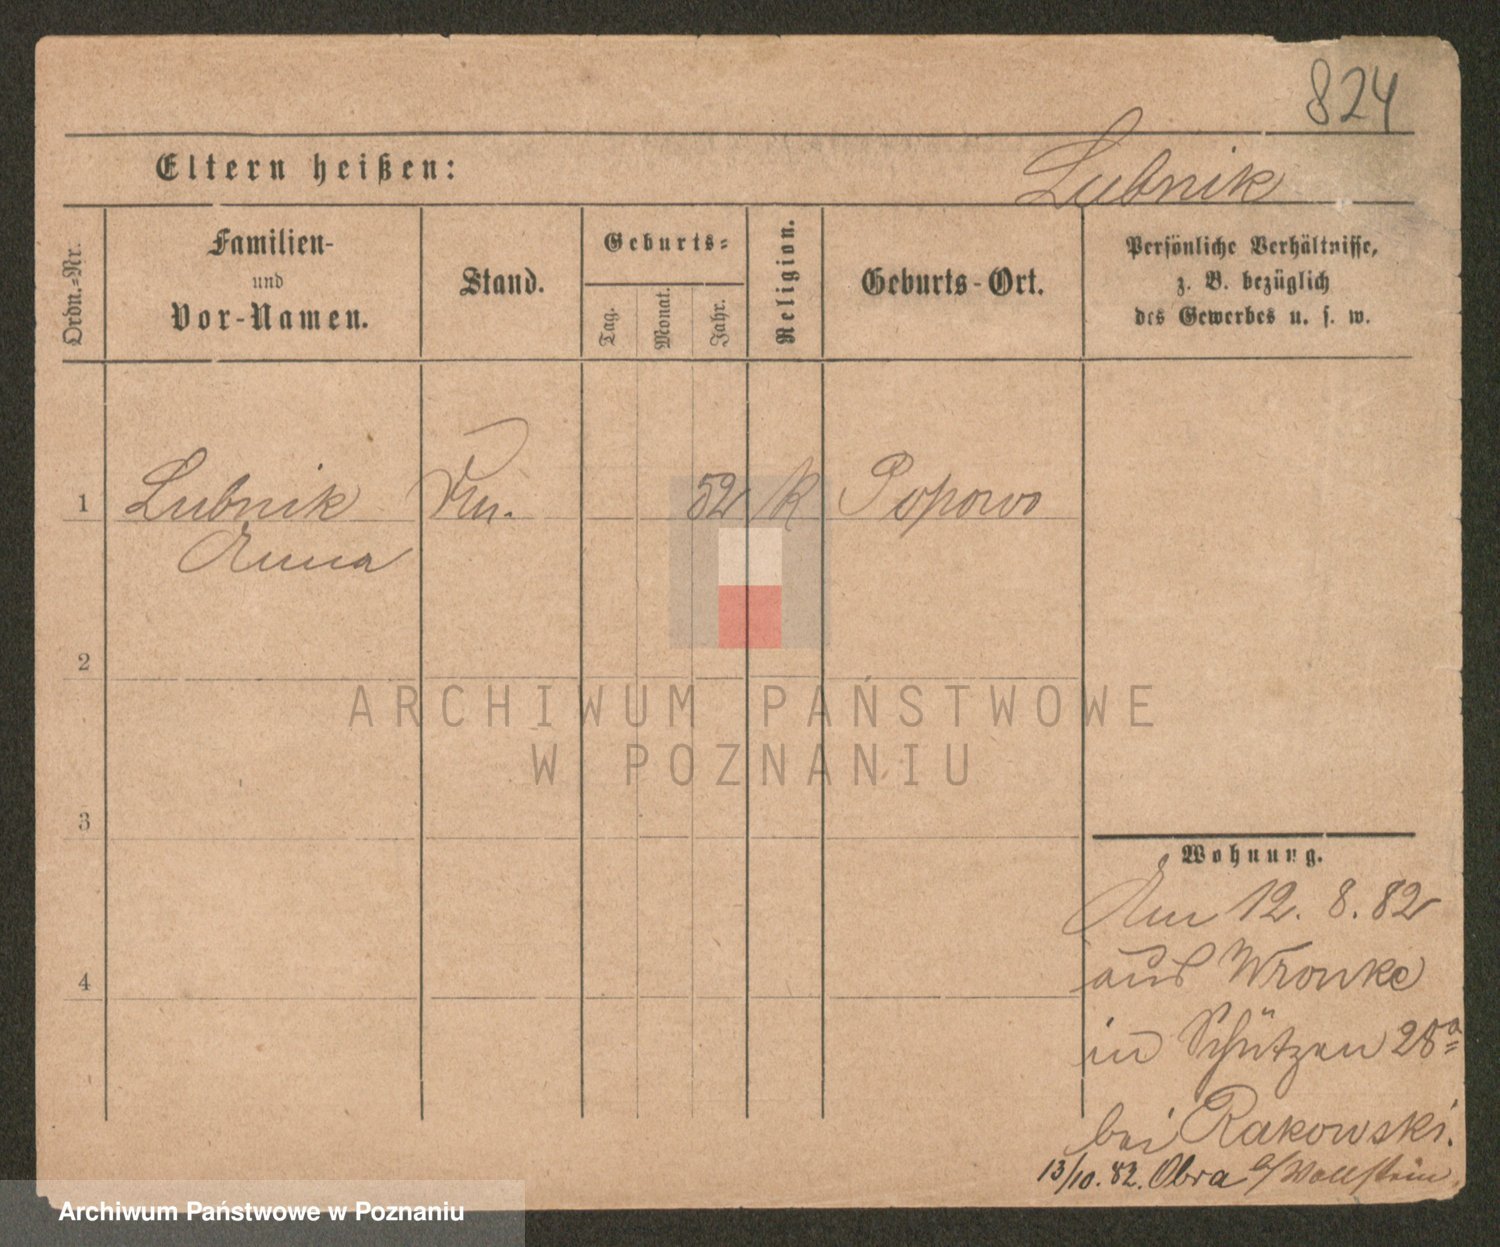 824
Eltern heißen:
Lubnik
Ordn.-Nr.
Familien-
und
Vor-Namen.
Stand.
Geburts-
Tag.
Monat.
Jahr.
Religion.
Geburts-Ort.
Persönliche Verhältnisse,
z. B. bezüglich
des Gewerbes u. s. w.
1 Lubnik 52 K Popowo
Anna
2
3
4
Wohnung.
Am 12. 8. 82
aus Wronke
in Schützen 28a
bei Rakowski.
13/10. 82. Obra b/Wollstein.
ARCHIWUM PAŃSTWOWE
W POZNANIU
Archiwum Państwowe w Poznaniu